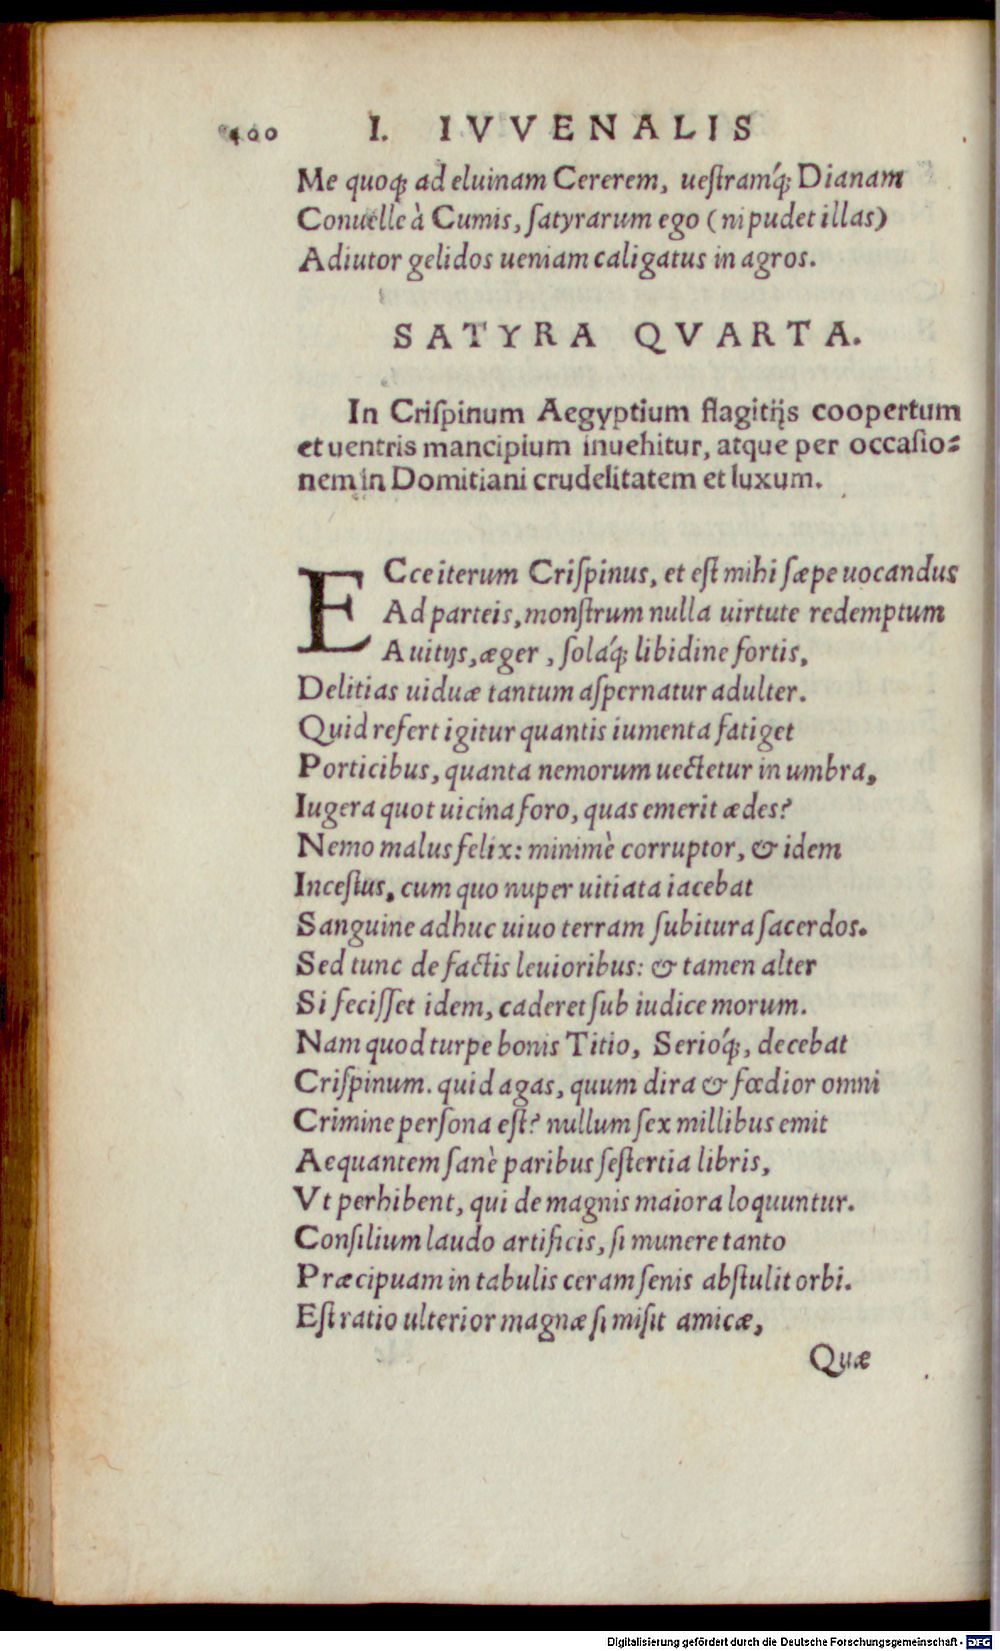 400 I. IVVENALIS
Me quoq; ad eluinam Cererem, ueſtramq́; Dianam
Conuelle à Cumis, ſatyrarum ego (ni pudet illas)
Adiutor gelidos ueniam caligatus in agros.
SATYRA QVARTA.
In Criſpinum Aegyptium flagitijs coopertum
et uentris mancipium inuehitur, atque per occaſio⸗
nem in Domitiani crudelitatem et luxum.
ECce iterum Criſpinus, et eſt mihi ſæpe uocandus
Ad parteis, monſtrum nulla uirtute redemptum
A uitijs, æger, ſolaq́; libidine fortis,
Delitias uiduæ tantum aſpernatur adulter.
Quid refert igitur quantis iumenta fatiget
Porticibus, quanta nemorum uectetur in umbra,
Iugera quot uicina foro, quas emerit ædes?
Nemo malus felix: minimè corruptor, & idem
Inceſtus, cum quo nuper uitiata iacebat
Sanguine adhuc uiuo terram ſubitura ſacerdos.
Sed tunc de factis leuioribus: & tamen alter
Si feciſſet idem, caderet ſub iudice morum.
Nam quod turpe bonis Titio, Serioq́;, decebat
Criſpinum. quid agas, quum dira & fœdior omni
Crimine perſona eſt? nullum ſex millibus emit
Aequantem ſanè paribus ſeſtertia libris,
Vt perhibent, qui de magnis maiora loquuntur.
Conſilium laudo artificis, ſi munere tanto
Præcipuam in tabulis ceram ſenis abſtulit orbi.
Eſt ratio ulterior magnæ ſi miſit amicæ,
Quæ
Digitalisierung gefördert durch die Deutsche Forschungsgemeinschaft - DFG